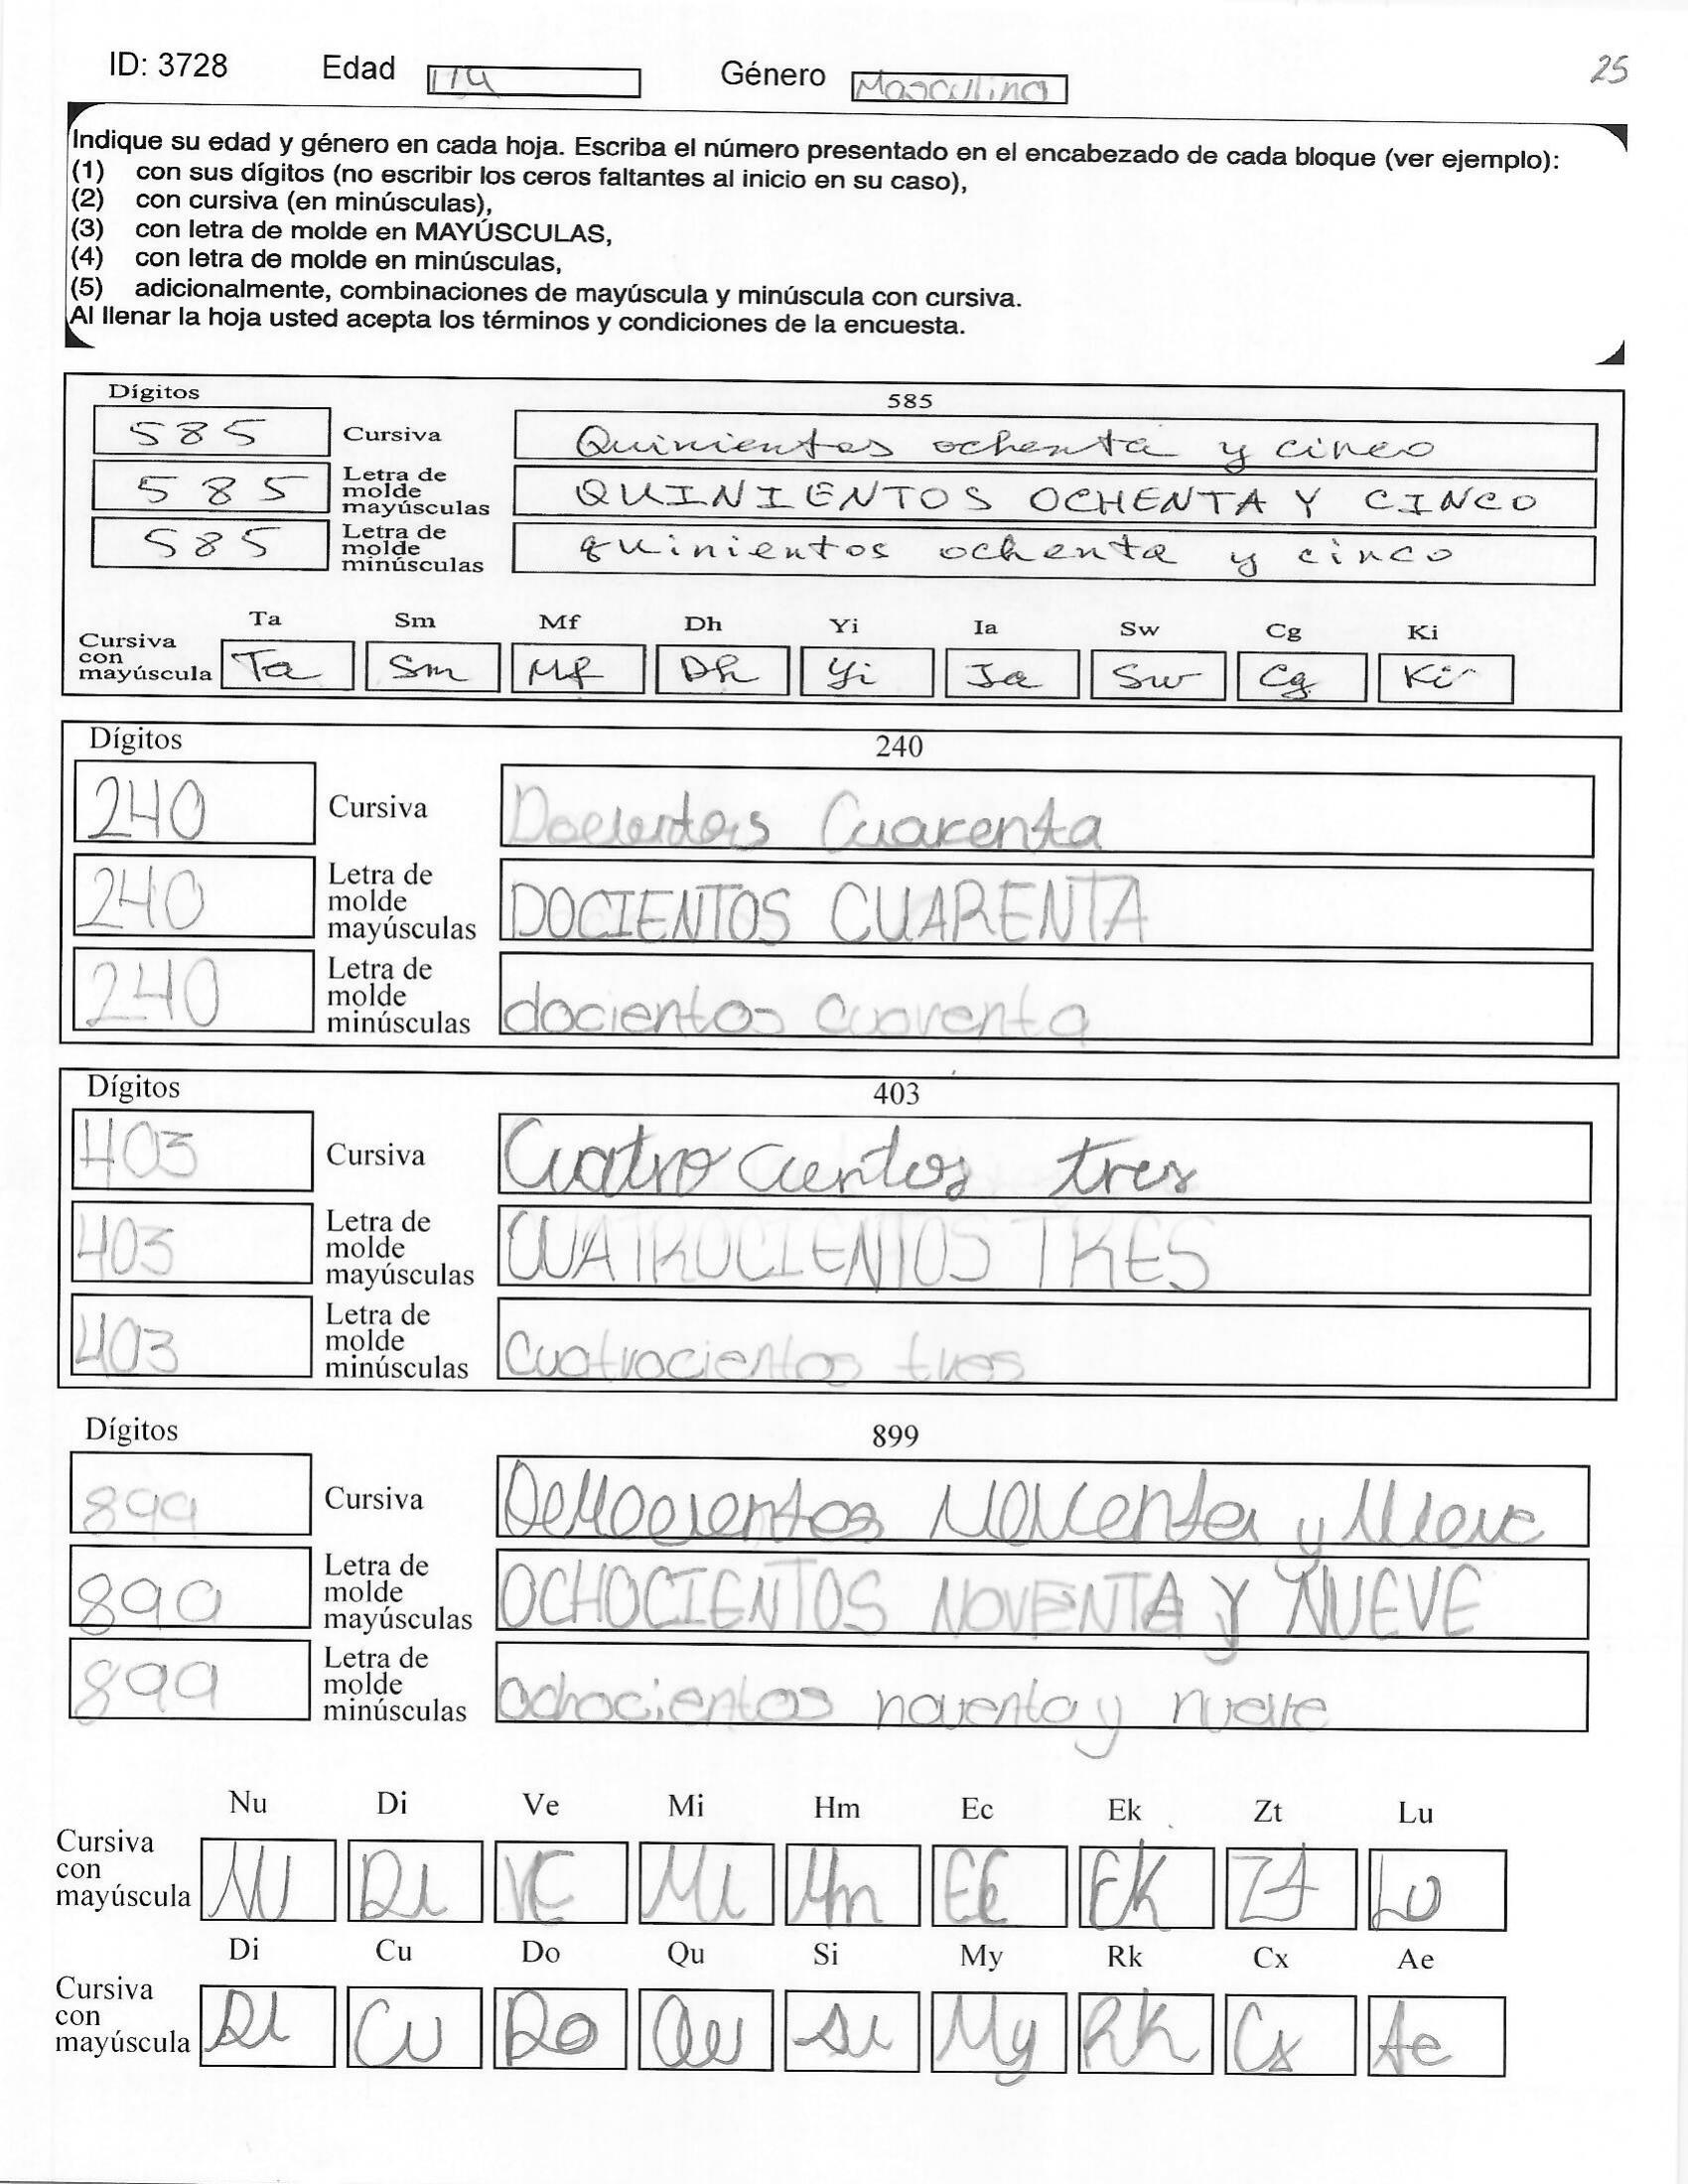 ID: 3728 Edad Género Masculino 25
Indique su edad y género en cada hoja. Escriba el número presentado en el encabezado de cada bloque (ver ejemplo):
(1) con sus dígitos (no escribir los ceros faltantes al inicio en su caso),
(2) con cursiva (en minúsculas),
(3) con letra de molde en MAYÚSCULAS,
(4) con letra de molde en minúsculas,
(5) adicionalmente, combinaciones de mayúscula y minúscula con cursiva.
Al llenar la hoja usted acepta los términos y condiciones de la encuesta.
Dígitos 585
585 Cursiva Quinientos ochenta y cinco
585 Letra de molde mayúsculas QUINIENTOS OCHENTA Y CINCO
585 Letra de molde minúsculas quinientos ochenta y cinco
Ta Sm Mf Dh Yi Ia Sw Cg Ki
Cursiva con mayúscula Ta Sm Mf Dh Yi Ia Sw Cg Ki
Dígitos 240
240 Cursiva Cuarenta
240 Letra de molde mayúsculas DOCIENTOS CUARENTA
240 Letra de molde minúsculas docientos cuarenta
Dígitos 403
403 Cursiva Cuatrocientos tres
403 Letra de molde mayúsculas CUATROCIENTOS TRES
403 Letra de molde minúsculas cuatrocientos tres
Dígitos 899
899 Cursiva Noventa y
899 Letra de molde mayúsculas OCHOCIENTOS NOVENTA Y NUEVE
899 Letra de molde minúsculas ochocientos noventa y nueve
Nu Di Ve Mi Hm Ec Ek Zt Lu
Cursiva con mayúscula NU Di VE Mi Hm EC EK Zt Lu
Di Cu Do Qu Si My Rk Cx Ae
Cursiva con mayúscula Di Cu Do Qu Si My RK Cx Ae